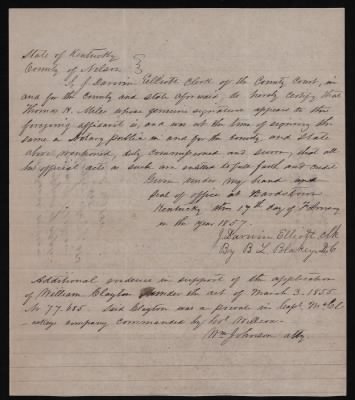 State of Kentucky
County of Nelson
I, J Darwin Elliott Clerk of the County Court, in
and for the county and state aforesaid, do hereby certify that
Thomas H. Miles whose genuine signature appears to the
foregoing affidavit is, and was at the time of signing the
same a Notary public in and for the County and State
above mentioned, duly commissioned and sworn, that all
his official acts as such are entitled to full faith and credit
Given under my hand and
seal of office at Bardstown
Kentucky this 17th day of February
in the year 1857
J Darwin Elliott Clk
By B L D.C
Additional evidence in support of the application
of William Clayton under the act of March 3. 1855.
No 77.685. Said Clayton was a private in Capt.
company commanded by
Wm Johnson atty